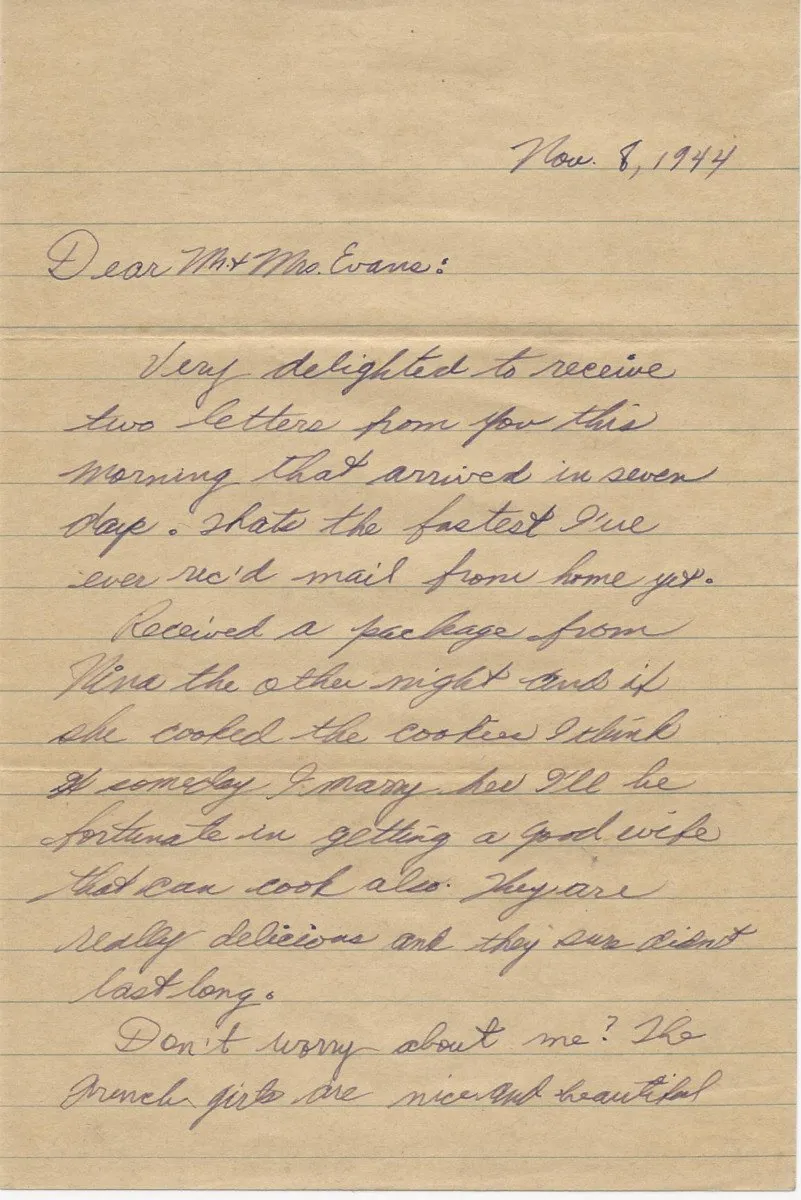 Nov. 8, 1944
Dear Mr. & Mrs. Evans:
Very delighted to receive
two letters from you this
morning that arrived in seven
days. Thats the fastest I've
ever rec'd mail from home yet.
Received a package from
Nina the other night and if
she cooked the cookies I think
if someday I marry her I'll be
fortunate in getting a good wife
that can cook also. They are
really delicious and they sure didn't
last long.
Don't worry about me? The
French girls are nice and beautiful